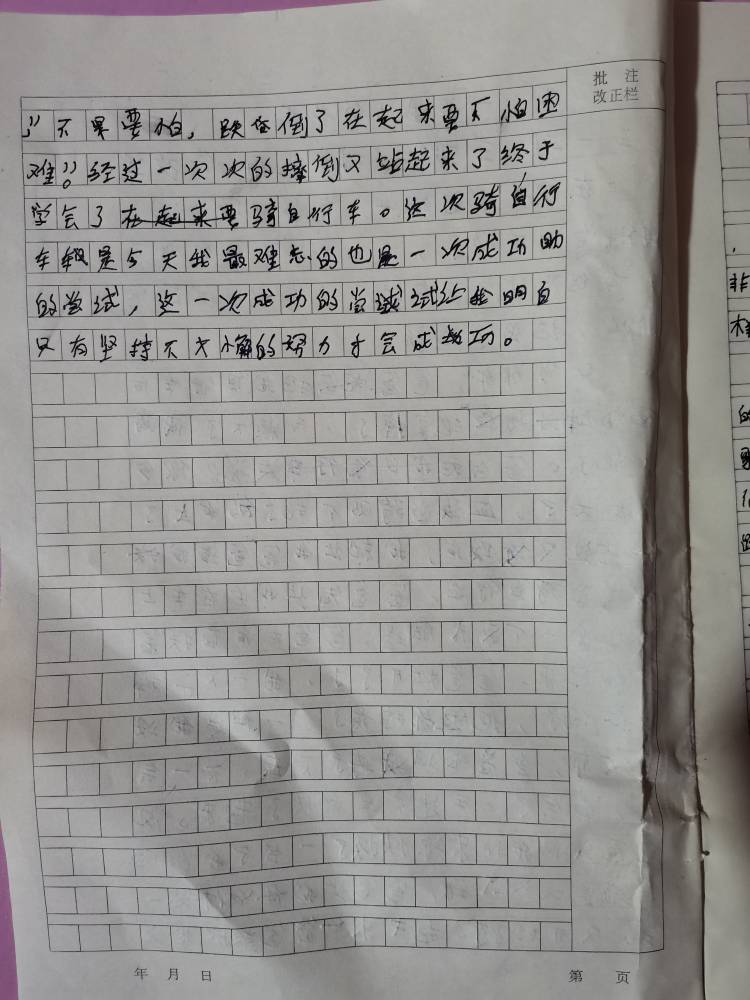 批 注
改正栏
”不果要怕，跌在倒了在起来要不怕困
难”。经过一次次的摔倒又站起来了终于
学会了在起来要骑自行车。这次骑自行
车是今天我最难忘的也是一次成功的
的尝试，这一次成功的尝试让我明白
只有坚持不懈的努力才会成功。
非
的
年 月 日
第 页